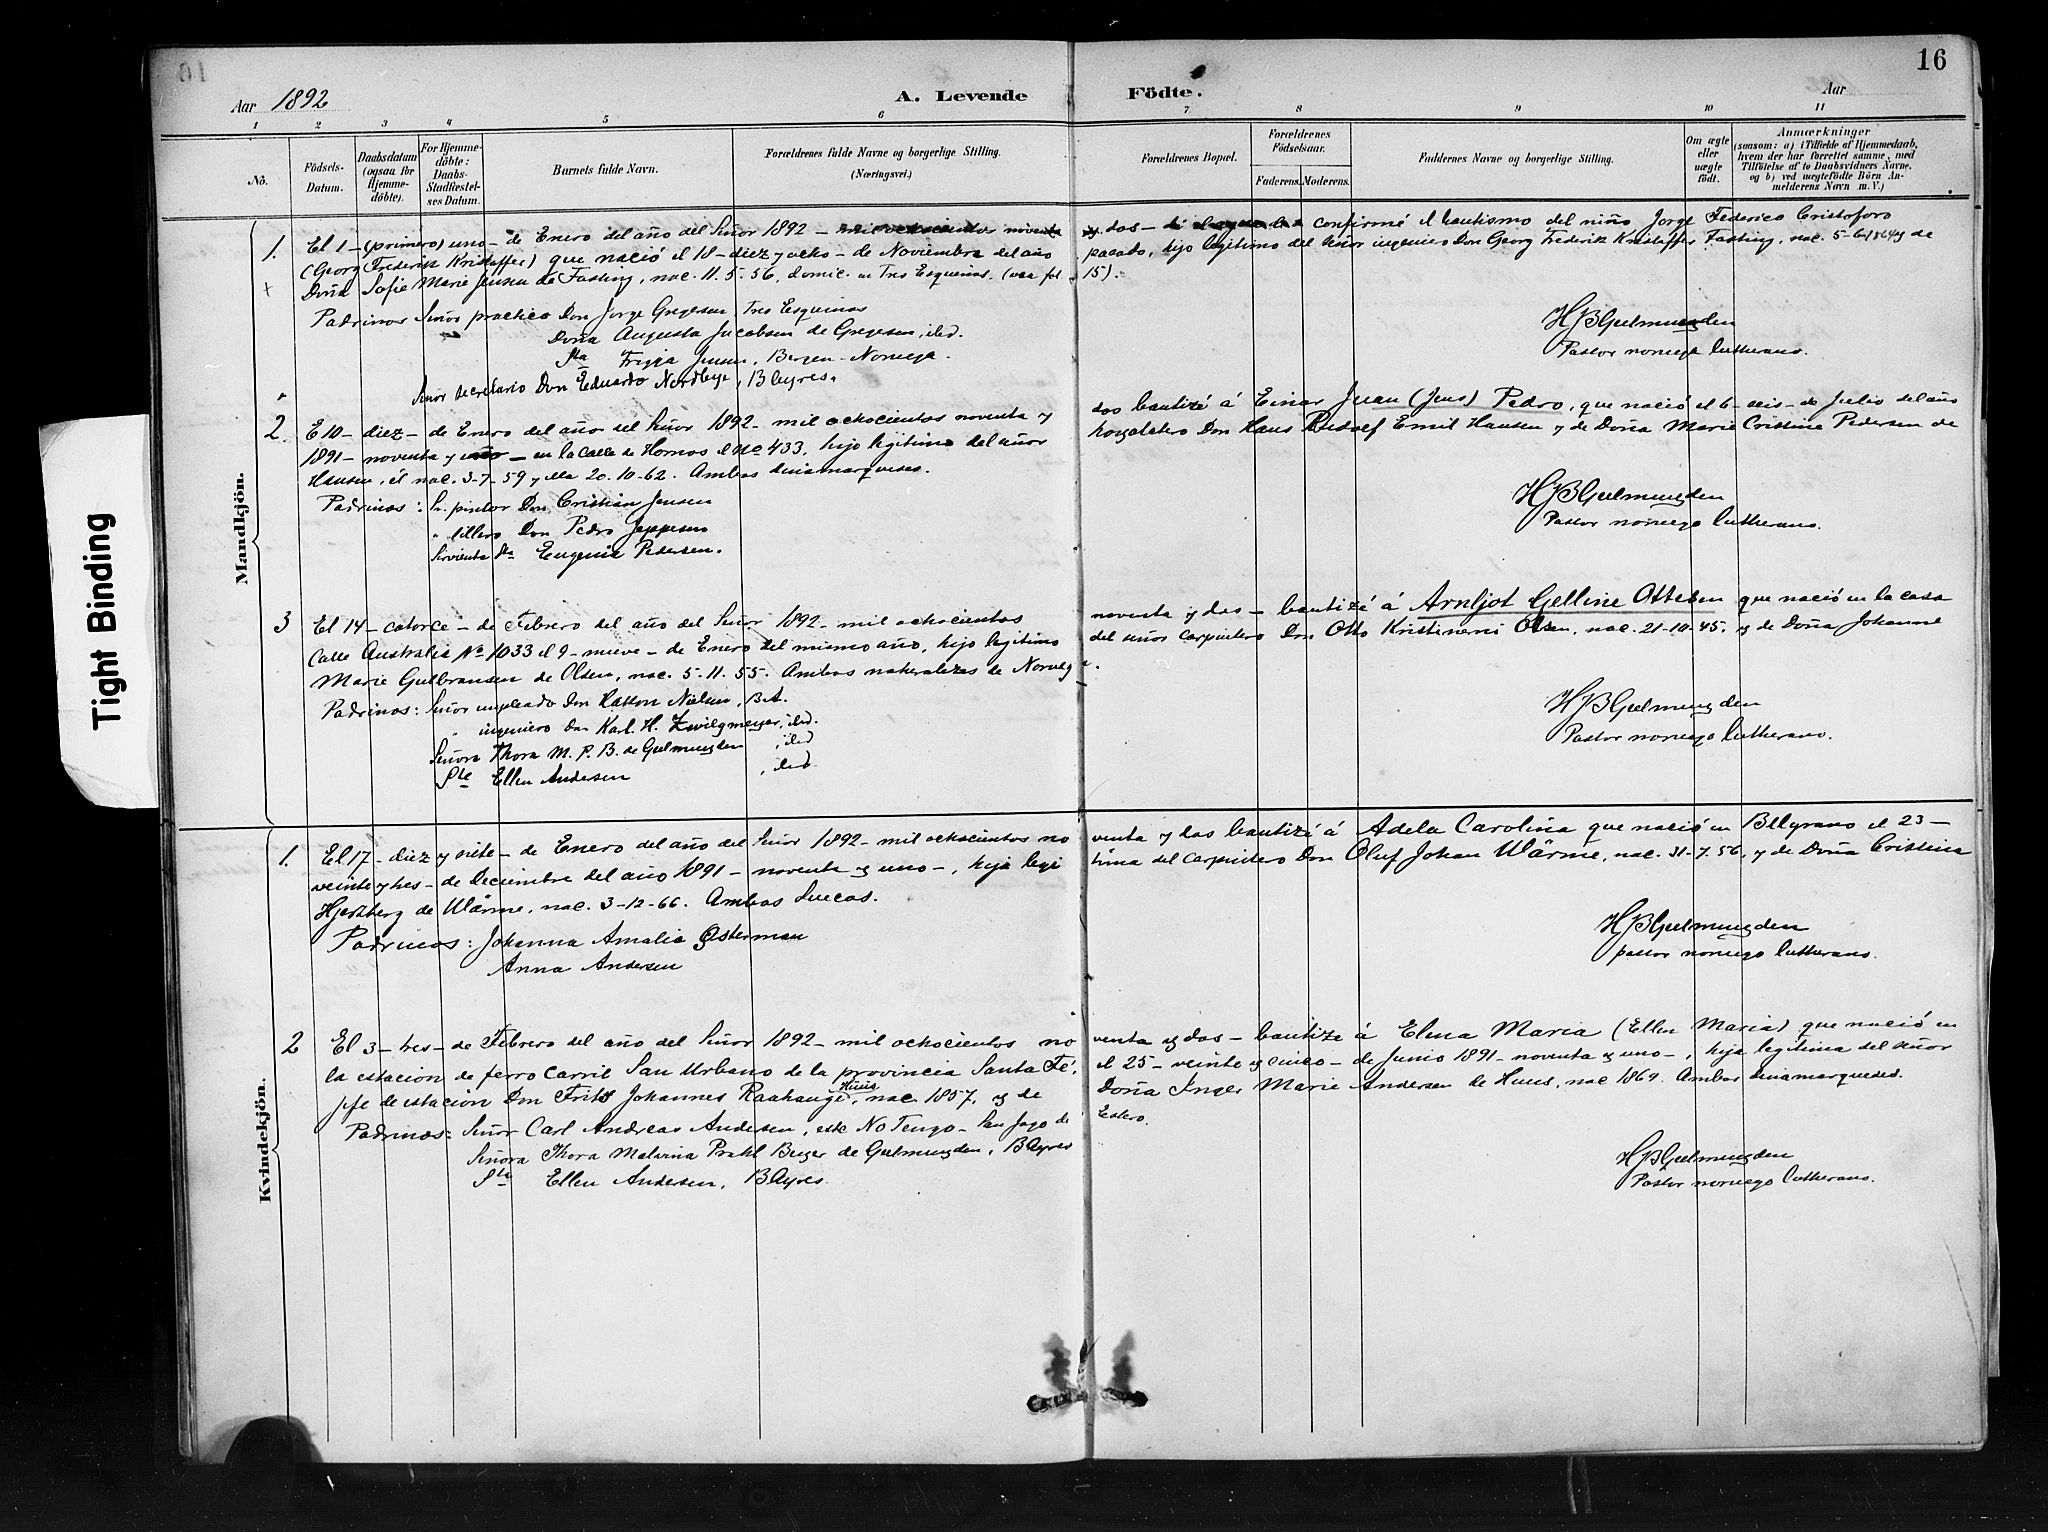 16
Aar 1892
A. Levende Födte.
Aar
1 2 3 4 5 6 7 8 9 10 11
No.
Födsels-Datum.
Daabsdatum (ogsaa for Hjemme-döbte).
For Hjemme-döbte: Daabs-Stadfæstel-ses Datum.
Barnets fulde Navn.
Forældrenes fulde Navne og borgerlige Stilling.
(Næringsvei.)
Forældrenes Bopæl.
Forældrenes Födselsaar.
Faderens. Moderens.
Faddernes Navne og borgerlige Stilling.
Om ægte eller uægte födt.
Anmærkninger
(saasom: a) i Tilfælde af Hjemmedaab, hvem der har forrettet samme, med Tilföielse af to Daabsvidners Navne, og b) ved uægtefödte Börn An-melderens Navn m. V.)
Mandkjön.
1. El 1 - (primero) uno - de Enero del año del Señor 1892 - mil ochocientos noventa y dos - confirmé el bautismo del niño Jorge Federico Cristoforo
(Georg Frederik Kristoffer) que nació el 18 - diez y ocho - de Noviembre del año pasado, hijo legitimo del Señor ingeniero Don Georg Frederik Kristoffer Fasting, nac. 5-6-1864 y de
Doña Sofie Marie Jensen de Fasting, nac. 11.5.56, domic. en Tres Esquinas. (vea fol. 15).
Padrinos Señor practico Don Jorge Gregesen, Tres Esquinas
Doña Augusta Jacobsen de Gregesen, ibid.
Sta Frigga Jensen, Bergen - Noruega.
Señor secretario Don Eduardo Nordbye, B Ayres.
HBGuelmuyden
Pastor noruego lutherano.
2. El 10 - diez - de Enero del año del Señor 1892 - mil ochocientos noventa y dos bautizé á Einar Juan (Jens) Pedro, que nació el 6 - seis - de Julio del año
1891 - noventa y uno - en la Calle de Hornos el No 433, hijo legitimo del Señor hojalatero Don Hans Rudolf Emil Hansen y de Doña Marie Cristine Pedersen de
Hansen, él nac. 3-7-59 y ella 20.10-62. Ambos dinamarqueses.
Padrinos: Sr. pintor Don Cristian Jensen
" sillero Don Pedro Jeppesen
Sirvienta Sta Eugenie Pedersen.
HBGuelmuyden
Pastor noruego lutherano.
3 El 14 - catorce - de Febrero del año del Señor 1892 - mil ochocientos noventa y dos - bautizé á Arnljot Gelline Ottesen que nació en la casa
Calle Australia No 1033 el 9 - nueve - de Enero del mismo año, hijo legitimo del Señor carpintero Don Otto Olsen, nac. 21-10-45, y de Doña Johanne
Marie Gulbransen de Olsen, nac. 5-11-55. Ambos naturalizas de Noruega.
Padrinos: Señor empleado Don Nielsen, B.A.
" ingeniero Don Karl. H. Zwilgmeyer, ibid.
Señora Thora M. P. B. de Guelmuyden, ibid
Sta Ellen Andersen, ibid.
HBGuelmuyden
Pastor noruego lutherano.
Kvindekjön.
1. El 17 - diez y siete - de Enero del año del Señor 1892 - mil ochocientos noventa y dos bautizé á Adela Carolina que nació en Belgrano el 23 -
veinte y tres - de Deciembre del año 1891 - noventa y uno -, hija legitima del carpintero Don Oluf Johan Wärme, nac. 31-7.56, y de Doña Cristina
Hjertberg de Wärme, nac. 3-12-66. Ambos Suecos.
Padrinos: Johanna Amalia Østerman
Anna Andersen
HBGuelmuyden
pastor noruego lutherano.
2 El 3 - tres - de Febrero del año del Señor 1892 - mil ochocientos noventa y dos - bautize á Elena Maria (Ellen Maria) que nació en
la estacion de ferro carril San Urbano de la provincia Santa Fé, el 25 - veinte y cinco - de Junio 1891 - noventa y uno -, hija legitima del Señor
jefe de estacion Don Fritz Johannes Raahauge Huus, nac. 1857, y de Doña Inger Marie Andersen de Huus, nac 1869. Ambos dinamarqueses.
Padrinos: Señor Carl Andreas Andersen, estc No Tengo - San Jago de Estero.
Señora Thora Malvina Prahl Berger de Guelmuyden, B Ayres
Sta Ellen Andersen, B Ayres.
HBGuelmuyden
Pastor noruego lutherano.
Tight Binding